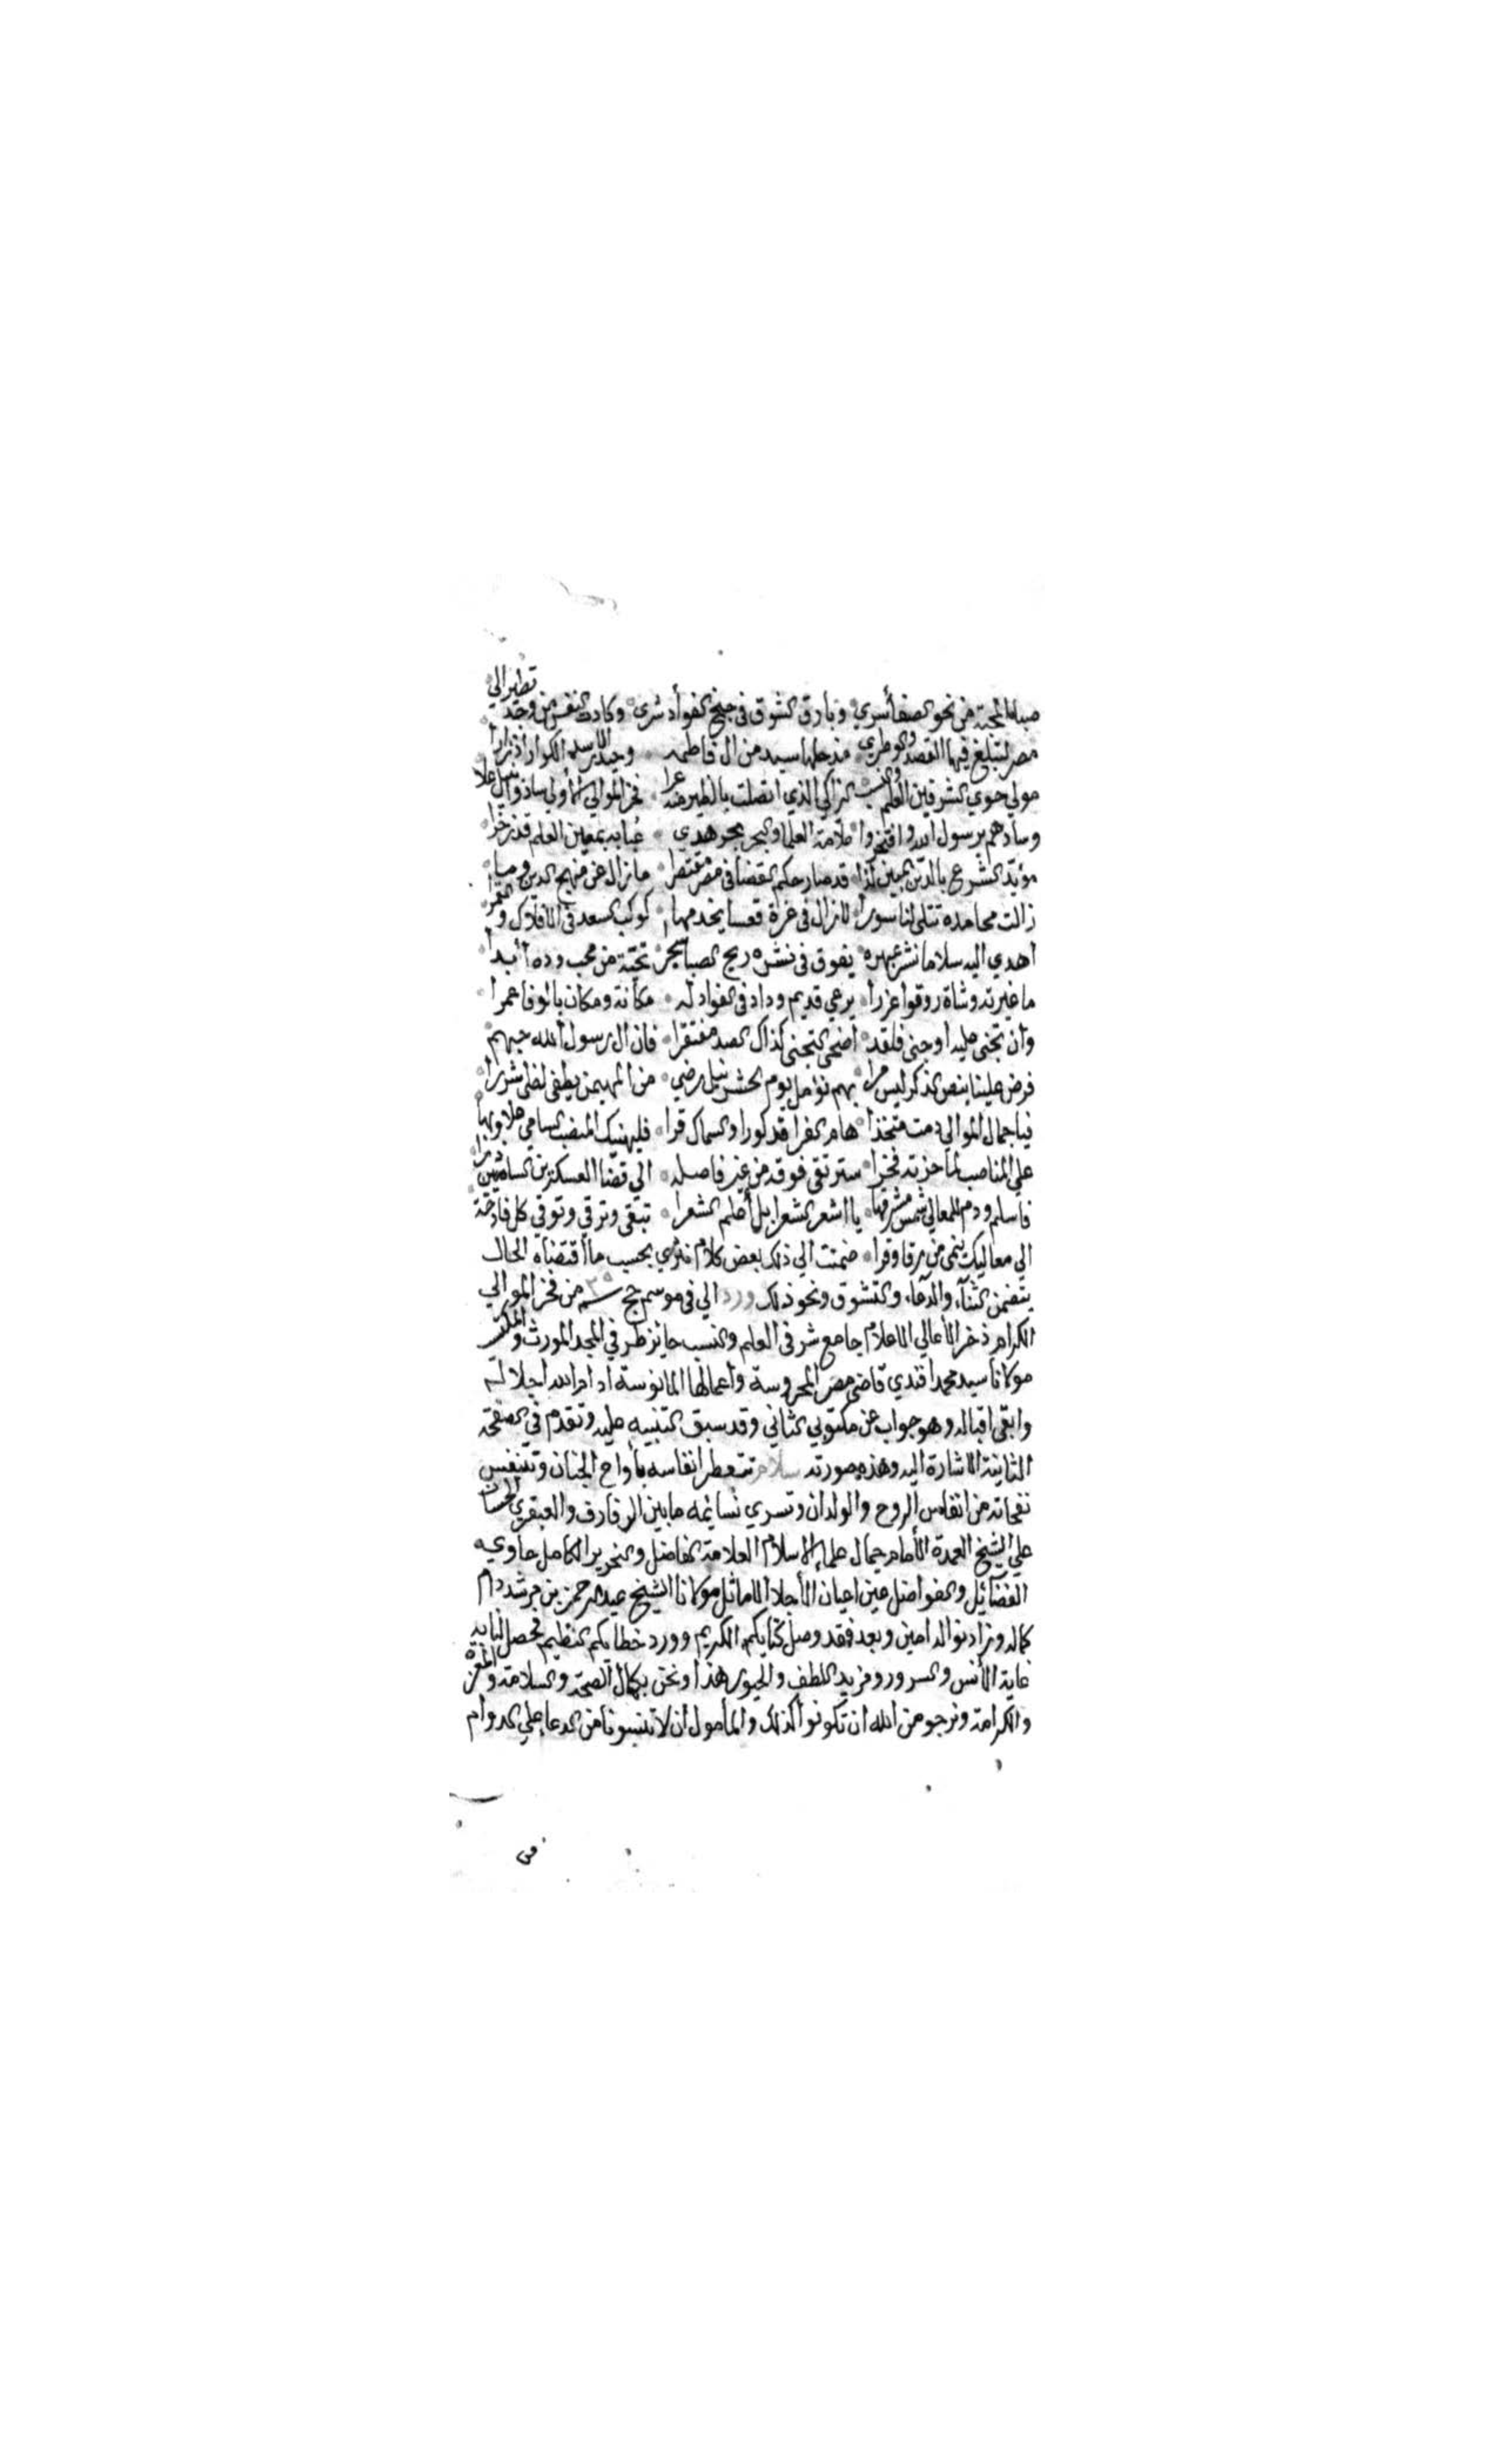 صبابا لمحبة من نحو الصفا أسري وبارق الشوق في جنح الفواد شرى وكادت النفس من وجد تطير الي
مصر لتبلغ فيها القصد والوطري مذ حلها سيد من ال فاطمة وحيدر الاسد الكرار اذ زارا
مولي حوي الشرفين العلم والنسب الزاكي الذي اتصلت بالطهر منه عرا فخر الموالي الأولي سادوا بنيل علا
وسادهم برسول الله وافتخرا علامة العلما والبحر بحر هدي عبابه بمعين العلم قد زخرا
مؤيد الشرع بالدين المبين لذا قد صار حكم القضا في مصر مقتصرا ما زال عن منهج الدين وما
زالت محامده تتلي لنا سورا لا زال في عزة قعسا يخدمها كوكب السعد في الافلاك والقمرا
اهدي اليه سلاما نشر عبهره يفوق في نشره ريح الصبا سحرا تحية من محب وده أبدا
ما غيرته وشاة زوقوا عزرا يرعي قديم وداد في الفواد له مكانة ومكان بالوفا عمرا
وان تجنى عليه او جنى فلقد اضحى التجنى كذاك الصد مغتفرا فان ال رسول الله حبهم
فرض علينا بنص الذكر ليس مرا بهم نؤمل يوم الحشر نيل رضي من المهيمن يطفي لظى شررا
فيا جمال الموالي دمت متخذا هام الفرا قد كورا والسماك قرا فليهنك المنصب السامي علا وبها
علي المناصب لما حزته فخرا سترتقي فوقه من غير فاصلة الي قضا العسكرين الساميين ذرا
فاسلم ودم للمعالي شمس مشرقها يا اشعر الشعرا بل أعلم الشعرا تبقى وترقي وتوقي كل فادحة
الي معاليك ينمى من رقا وقرا ضممت الي ذلك بعض كلام نثري بحسب ما اقتضاه الحال
يتضمن الثناء والدعاء والتشوق ونحو ذلك ورد الي في موسم حج سنة ٣٩ من فخر الموالي
الكرام ذخر الأعالي الاعلام جامع شرفي العلم والنسب حايز طرفي المجد المورث والمكتسب
مولانا سيد محمد افندي قاضي مصر المحروسة واعمالها المانوسة ادام الله اجلاله
وابقى اقباله وهو جواب عن مكتوبي الثاني وقد سبق التنبيه عليه وتقدم في الصفحة
الثانية الاشارة اليه وهذه صورته سلام تتعطر انفاسه بأرواح الجنان وتتنفس
نفحاته من انفاس الروح والولدان وتسري نسائمه ما بين الرفارف والعبقري الحسان
علي الشيخ العمدة الأمام جمال علماء الاسلام العلامة الفاضل والنحرير الكامل حاوي
الفضائل والفواضل عين اعيان الأجلا الاماثل مولانا الشيخ عبد الرحمن بن مرشد دام
كماله وزاد نواله امين وبعد فقد وصل كتابكم الكريم وورد خطابكم العظيم فحصل لنا به
غاية الأنس والسرور ومزيد اللطف والحبور هذا ونحن بكمال الصحة والسلامة والمعزة
والكرامة ونرجو من الله ان تكونوا كذلك والمأمول ان لا تنسونا من الدعا علي الدوام
في